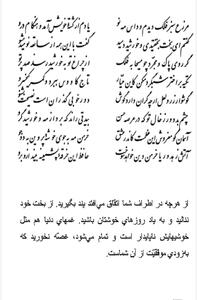 مزرع سبز فلک دیدم و داس مه نو یادم از کشته خویش آمد و هنگام درو
گفتم ای بخت بخفتیدی و خورشید دمید گفت با این همه از سابقه نومید مشو
گر روی پاک و مجرد چو مسیحا به فلک از چراغ تو به خورشید رسد صد پرتو
تکیه بر اختر شبگرد مکن کاین عیار تاج کاووس ببرد و کمر کیخسرو
گوشوار زر و لعل ار چه گران دارد گوش دور خوبی گذران است نصیحت بشنو
چشم بد دور ز خال تو که در عرصه حسن بیدقی راند که برد از مه و خورشید گرو
آسمان گو مفروش این عظمت کاندر عشق خرمن مه به جوی خوشه پروین به دو جو
آتش زهد و ریا خرمن دین خواهد سوخت حافظ این خرقه پشمینه بینداز و برو
از هرچه در اطراف شما اتفاق می‌افتد پند بگیرید. از بخت خود
ننالید و به یاد روزهای خوشتان باشید. غمهای دنیا هم مثل
خوشیهایش ناپایدار است و تمام می‌شود، غصّه نخورید که
به‌زودی موفقیّت از آن شماست.